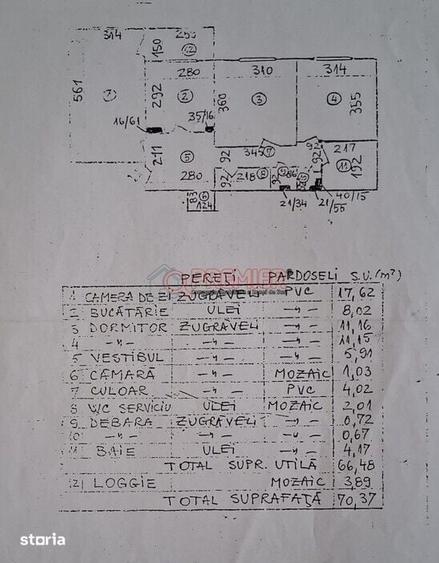 314
256
150
12
561
280
310
314
1
292
2
360
3
4
355
16/61
35/16
211
5
92
345
7
92
217
11
192
280
92
218
8
92
9
86
92
10
83
6
124
21/34
21/55
40/15
PEREȚI PARDOSELI S.U.(m²)
1 CAMERA DE ZI ZUGRĂVELI PVC 17,62
2 BUCĂTĂRIE ULEI -"- 8,02
3 DORMITOR ZUGRĂVELI -"- 11,16
4 -"- -"- -"- 11,15
5 VESTIBUL -"- -"- 5,91
6 CĂMARĂ -"- MOZAIC 1,03
7 CULOAR -"- PVC 4,02
8 WC SERVICIU ULEI MOZAIC 2,01
9 DEBARA ZUGRĂVELI -"- 0,72
10 -"- -"- -"- 0,67
11 BAIE ULEI -"- 4,17
TOTAL SUPR. UTILĂ 66,48
12 LOGGIE MOZAIC 3,89
TOTAL SUPRAFAȚĂ 70,37
PREMIER
storia